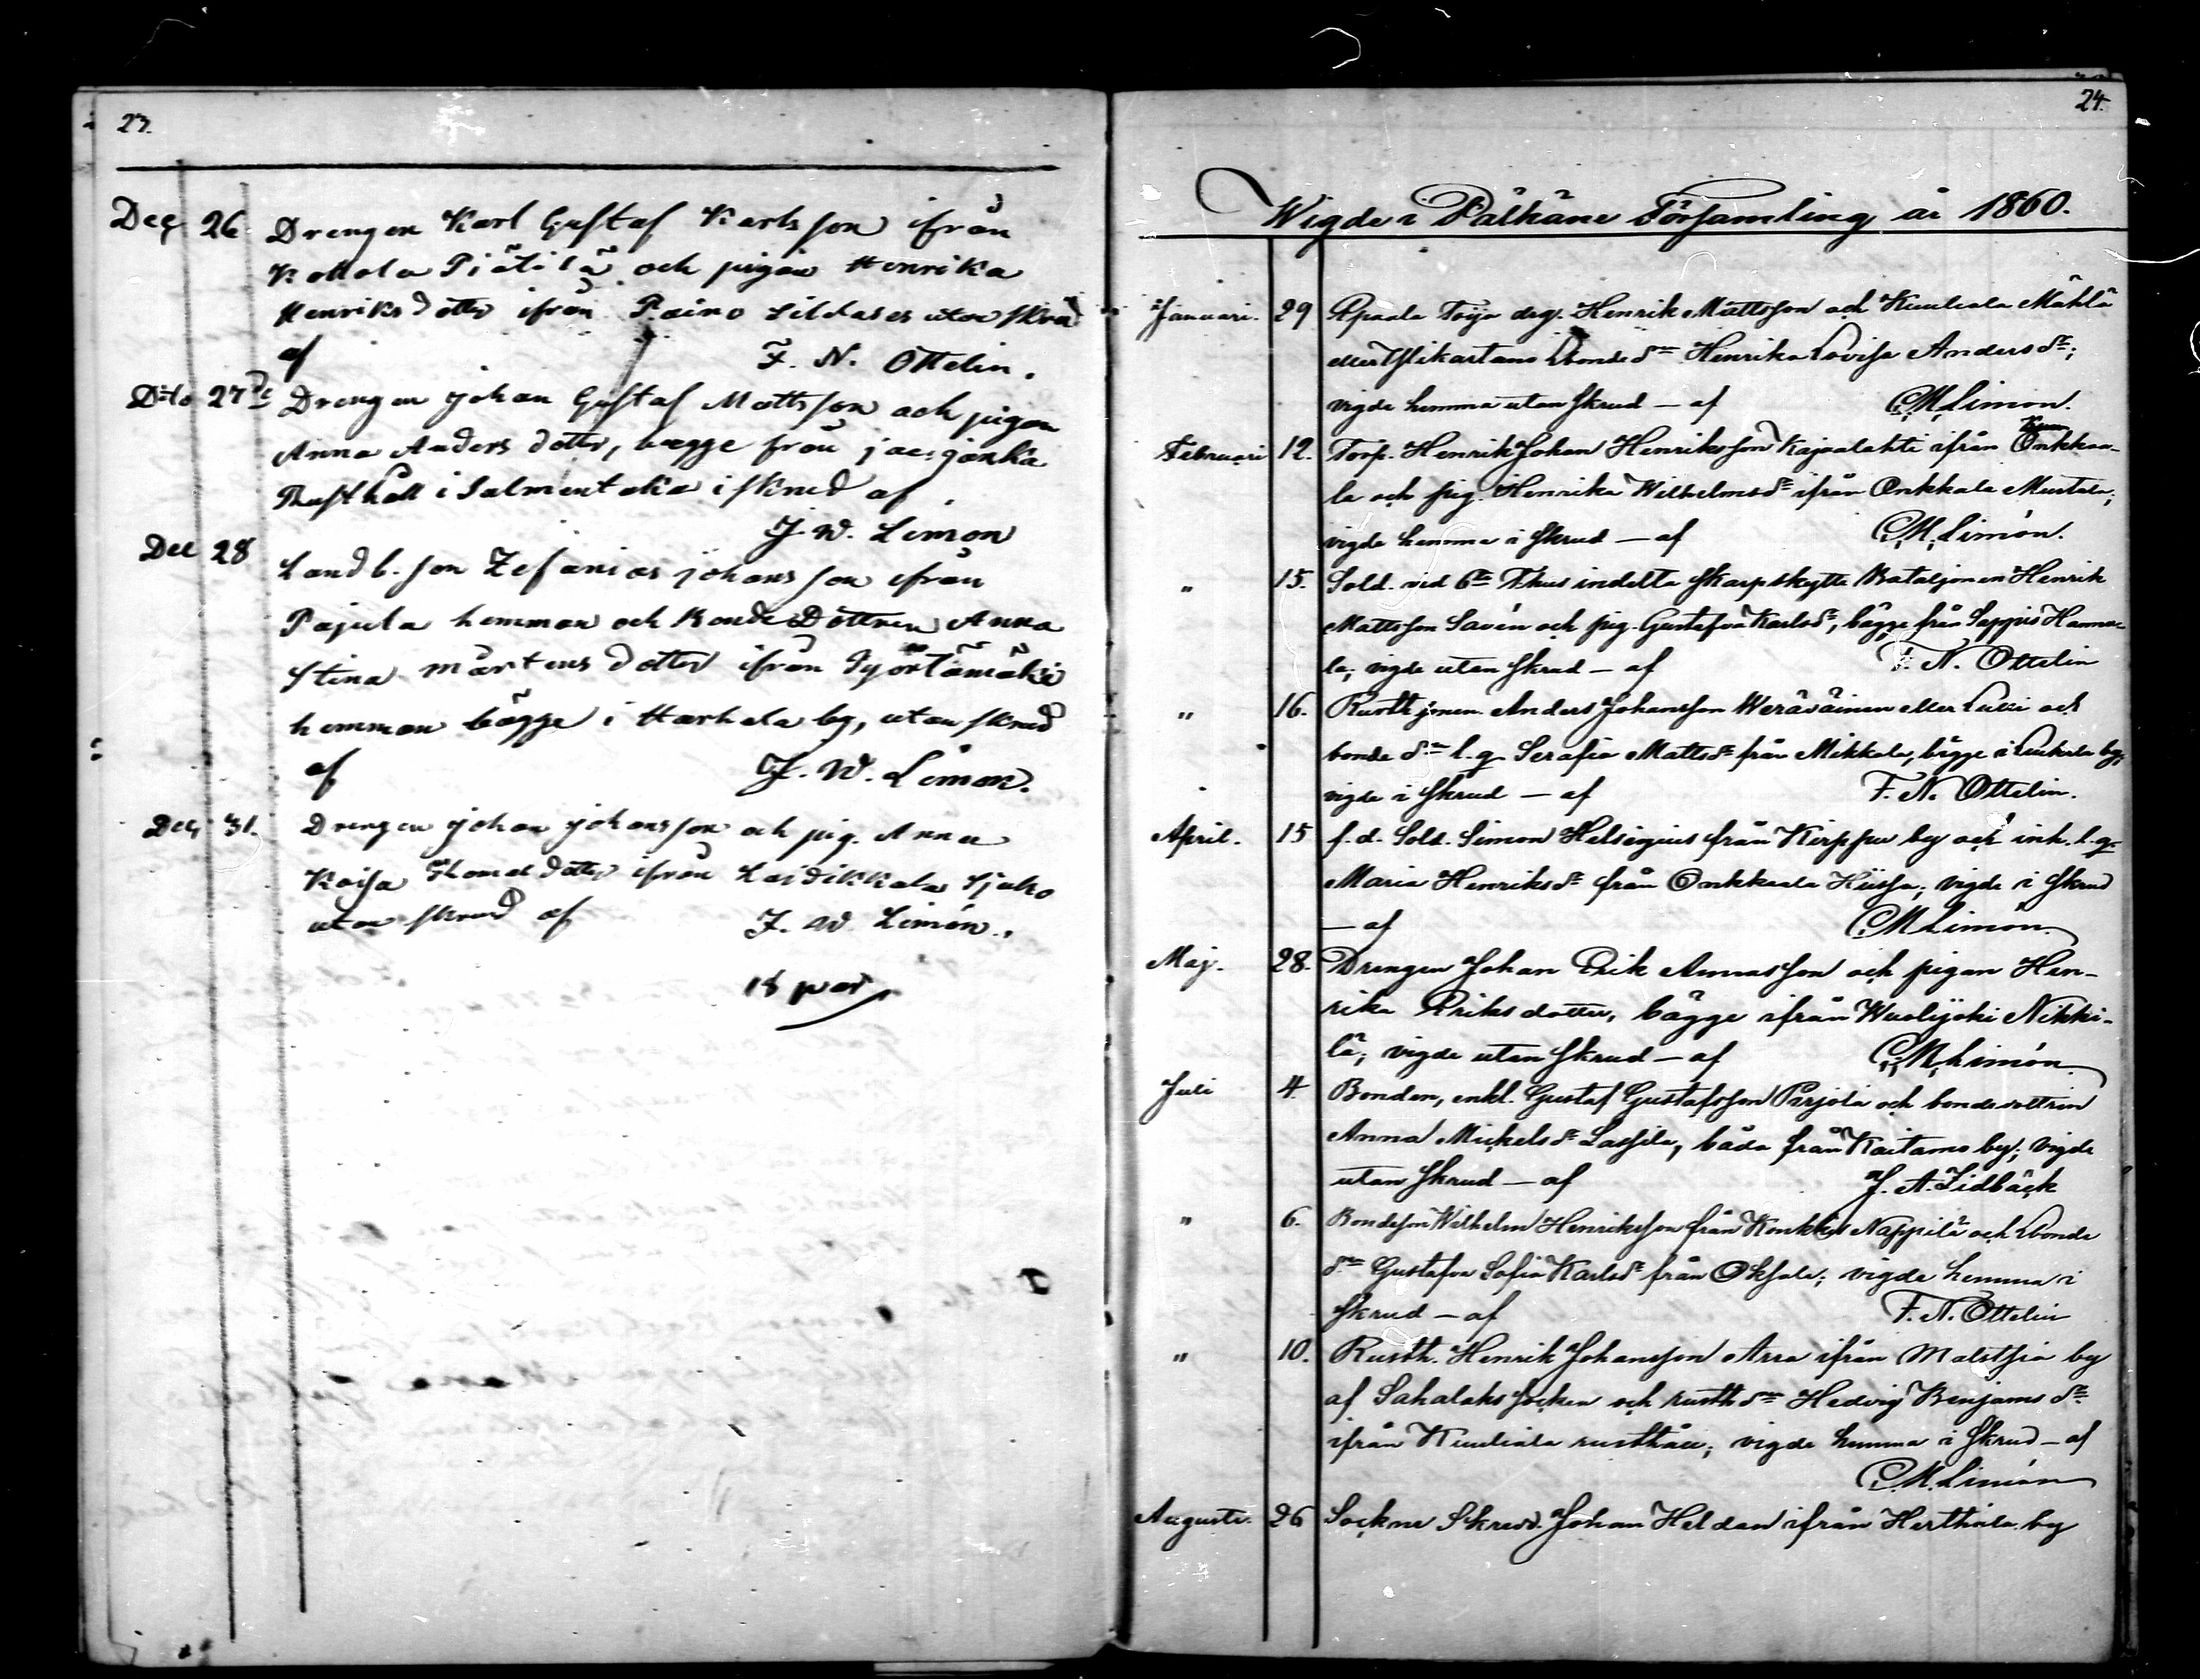 23.
Dec 26 Drengen Karl Gustaf Karlsson ifrån
Kottola Pjätilä och pigan Henrika
Henriksdotter ifrån Paino utan skrud
af F. N. Ottelin.
Dito 27de Drengen Johan Gustaf Mattsson och pigan
Anna Andersdotter, bägge från
Rusthåll i Salmentaka i skrud af
J. W. Limon
Dec 28 Landb. son Zefanias Johansson ifrån
Pajula hemman och Bonde Dottren Anna
Stina Mårtensdotter ifrån
hemman bägge i Harhala by, utan skrud
af J. W. Limon.
Dec 31. Drengen Johan Johansson och pig. Anna
Kaisa Thomasdotter ifrån Laidikkala
utan skrud af J. W. Limón.
18 par
24.
Wigde i Pälkäne Församling år 1860.
Januari. 29 Epaala Toija drg. Henrik Mattsson och Kuuliala Mähkä
eller bondedn Henrika Lovisa Andersdr;
vigde hemma utan skrud – af C. M. Limón.
Februari 12. Torp. Henrik Johan Henriksson Kajvalahti ifrån Onkkaa-
la och pig. Henrika Wilhelmsdr ifrån Onkkala Mustala;
vigde hemma i skrud – af C. M. Limón.
" 15. Sold. vid 6te Thus indelta skarpskytte Bataljonen Henrik
Mattsson Savén och pig. Gustafva Karlsdr, bägge från Sappis Hanna-
la; vigde utan skrud – af F. N. Ottelin
" 16. Rusth Anders Johansson Weräväinen eller och
bonde dn l. q. Serafia Mattsdr från Mikkola, bägge i by;
vigde i skrud – af F. N. Ottelin.
April. 15 f. d. Sold. Simon Helsingius från Kirppu by och inh. l. q.
Maria Henriksdr från Onkkaala Hiissa; vigde i skrud
– af C. M. Limón.
Maj. 28. Drengen Johan Erik Annasson och pigan Hen-
rika Eriksdotter, bägge ifrån Wuolijoki Nikki-
lä; vigde utan skrud – af C. M. Limón.
Juli 4. Bonden, enkl. Gustaf Gustafsson Parjola och bondedottren
Anna Mickelsdr Lassila, båda från Kaitamo by; vigde
utan skrud – af J. A. Lidbäck
" 6. Bondeson Wilhelm Henriksson från Nappilä och bonde
dn Gustafva Sofia Karlsdr från Oksala; vigde hemma i
skrud – af F. N. Ottelin
" 10. Rusth. Henrik Johansson Arra ifrån by
af Sahalaks socken och rusthdn Hedvig Benjamsdr
ifrån Kuuliala rusthåll; vigde hemma i skrud – af
C. M. Limón
Augusti. 26 Sockne Skredd. Johan Heldan ifrån Herttuala by